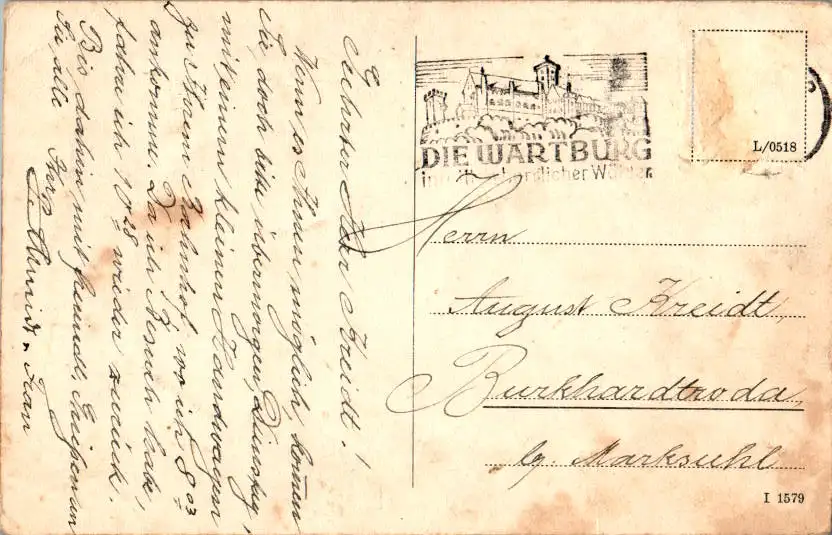 Geehrter Herr Kreidt!
Wenn es Ihnen möglich, kommen
Sie doch bitte übermorgen, Dienstag,
mit einem kleinen Handwagen
zu Ihrem Bahnhof, wo ich 8 03
ankomme. Da ich Besuch habe,
fahre ich 10 28 wieder zurück.
Bis dahin mit freundl. Grüßen an
Sie alle
Ihre
u. Frau
DIE WARTBURG
herrlicher Wälder
L/0518
Herrn
August Kreidt,
Burkhardtroda,
bg. Marksuhl
I 1579